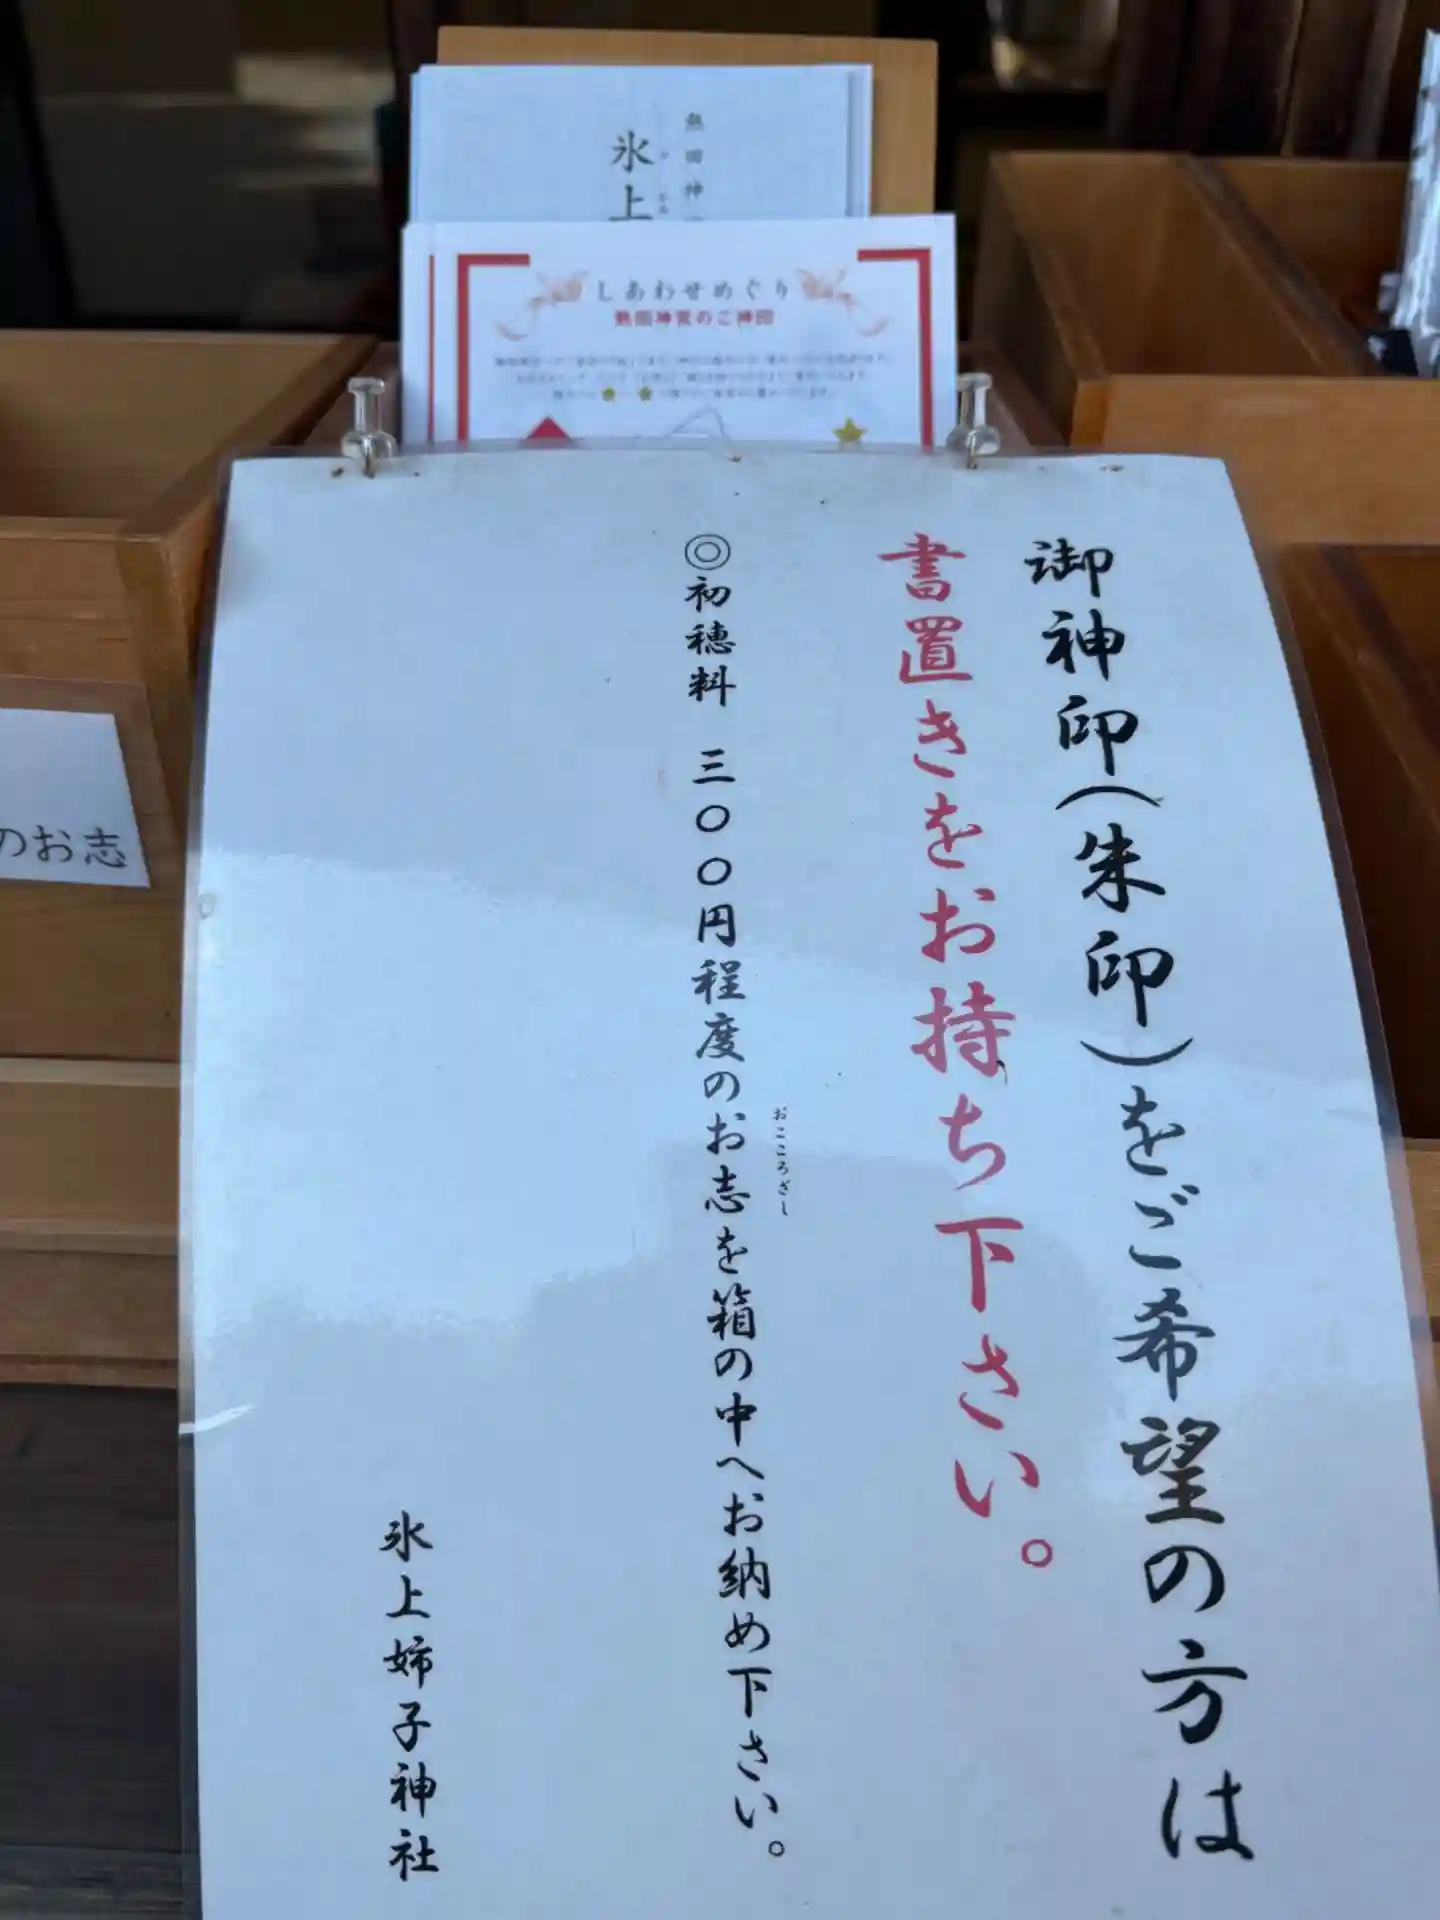 熱田神
氷上
しあわせめぐり
熱田神宮のご神印
のお志
御神印(朱印)をご希望の方は
書置きをお持ち下さい。
◎初穂料 三〇〇円程度のお志を箱の中へお納め下さい。
おこころざし
氷上姉子神社